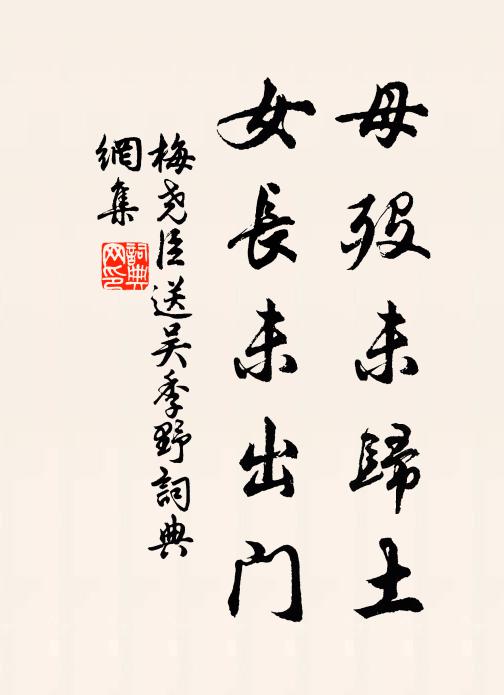 母殁未歸土
女長未出门
梅尧臣送吴季野詞典
網集
詞典
网印